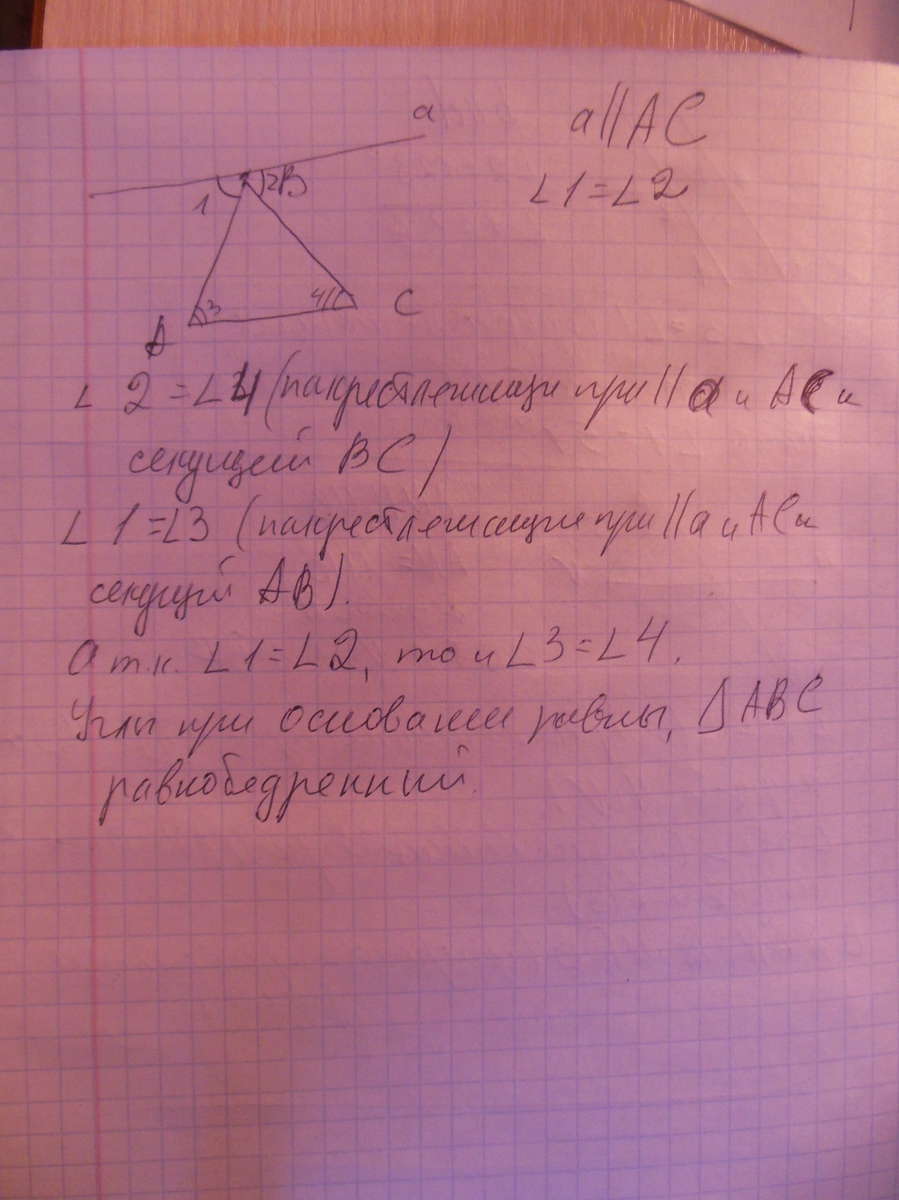 a
a||AC
∠1=∠2
1 2 B
3 4
A C
∠2=∠4 (накрестлежащи при || a и AC и
секущей BC)
∠1=∠3 (накрестлежащие при || a и AC и
секущий AB).
А т.к. ∠1=∠2, то и ∠3=∠4.
Углы при основании равны, △ABC
равнобедренный.